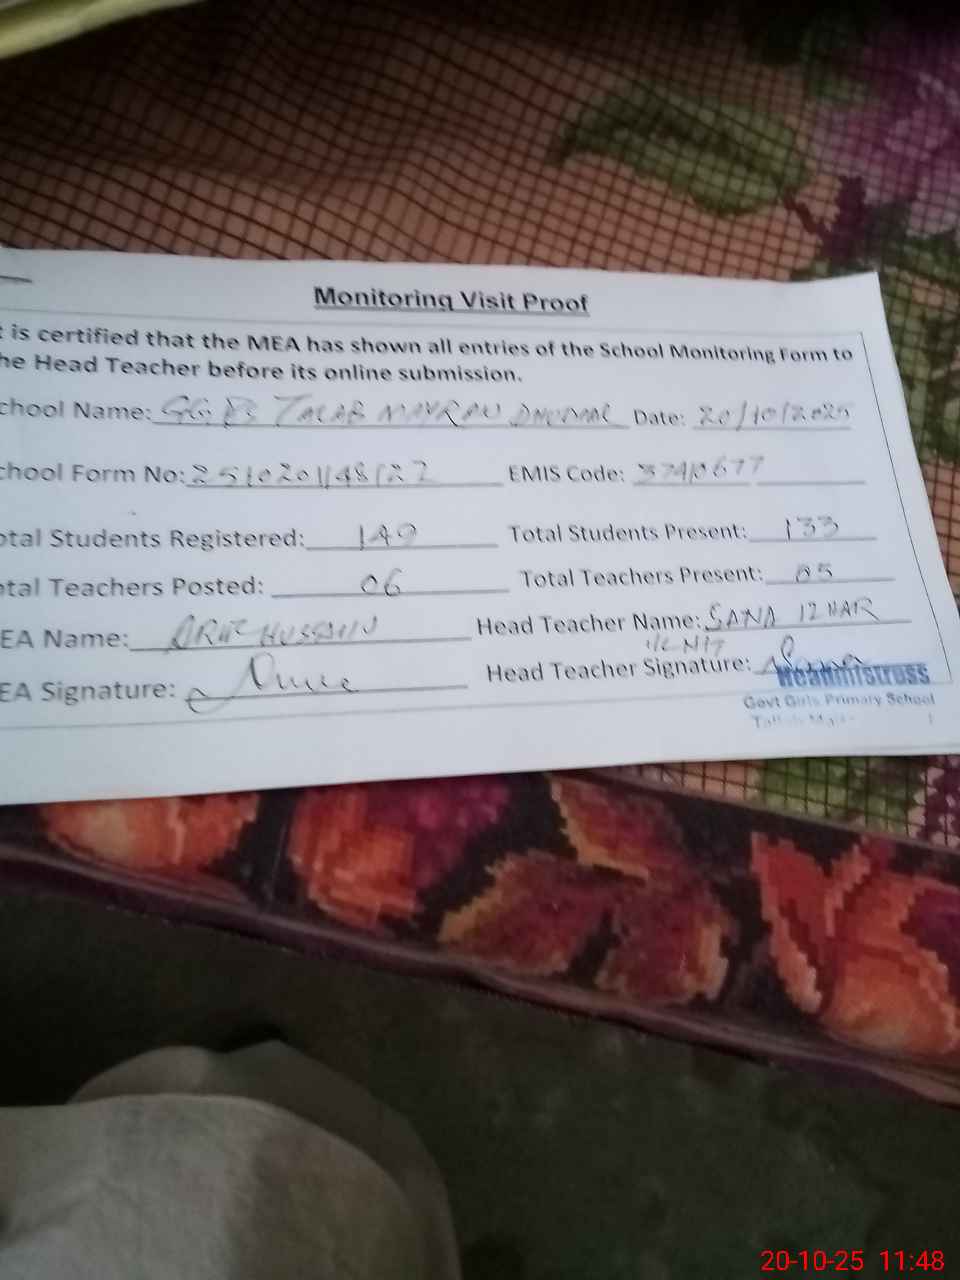 Monitoring Visit Proof
t is certified that the MEA has shown all entries of the School Monitoring Form to
he Head Teacher before its online submission.
chool Name: TALAB MAYRAN Date: 20/10/2025
chool Form No: EMIS Code:
otal Students Registered: 149 Total Students Present: 133
otal Teachers Posted: 06 Total Teachers Present: 05
EA Name: HUSSAIN Head Teacher Name: SANA IZHAR
EA Signature: Head Teacher Signature:
Headmistress
Govt Girls Primary School
20-10-25 11:48